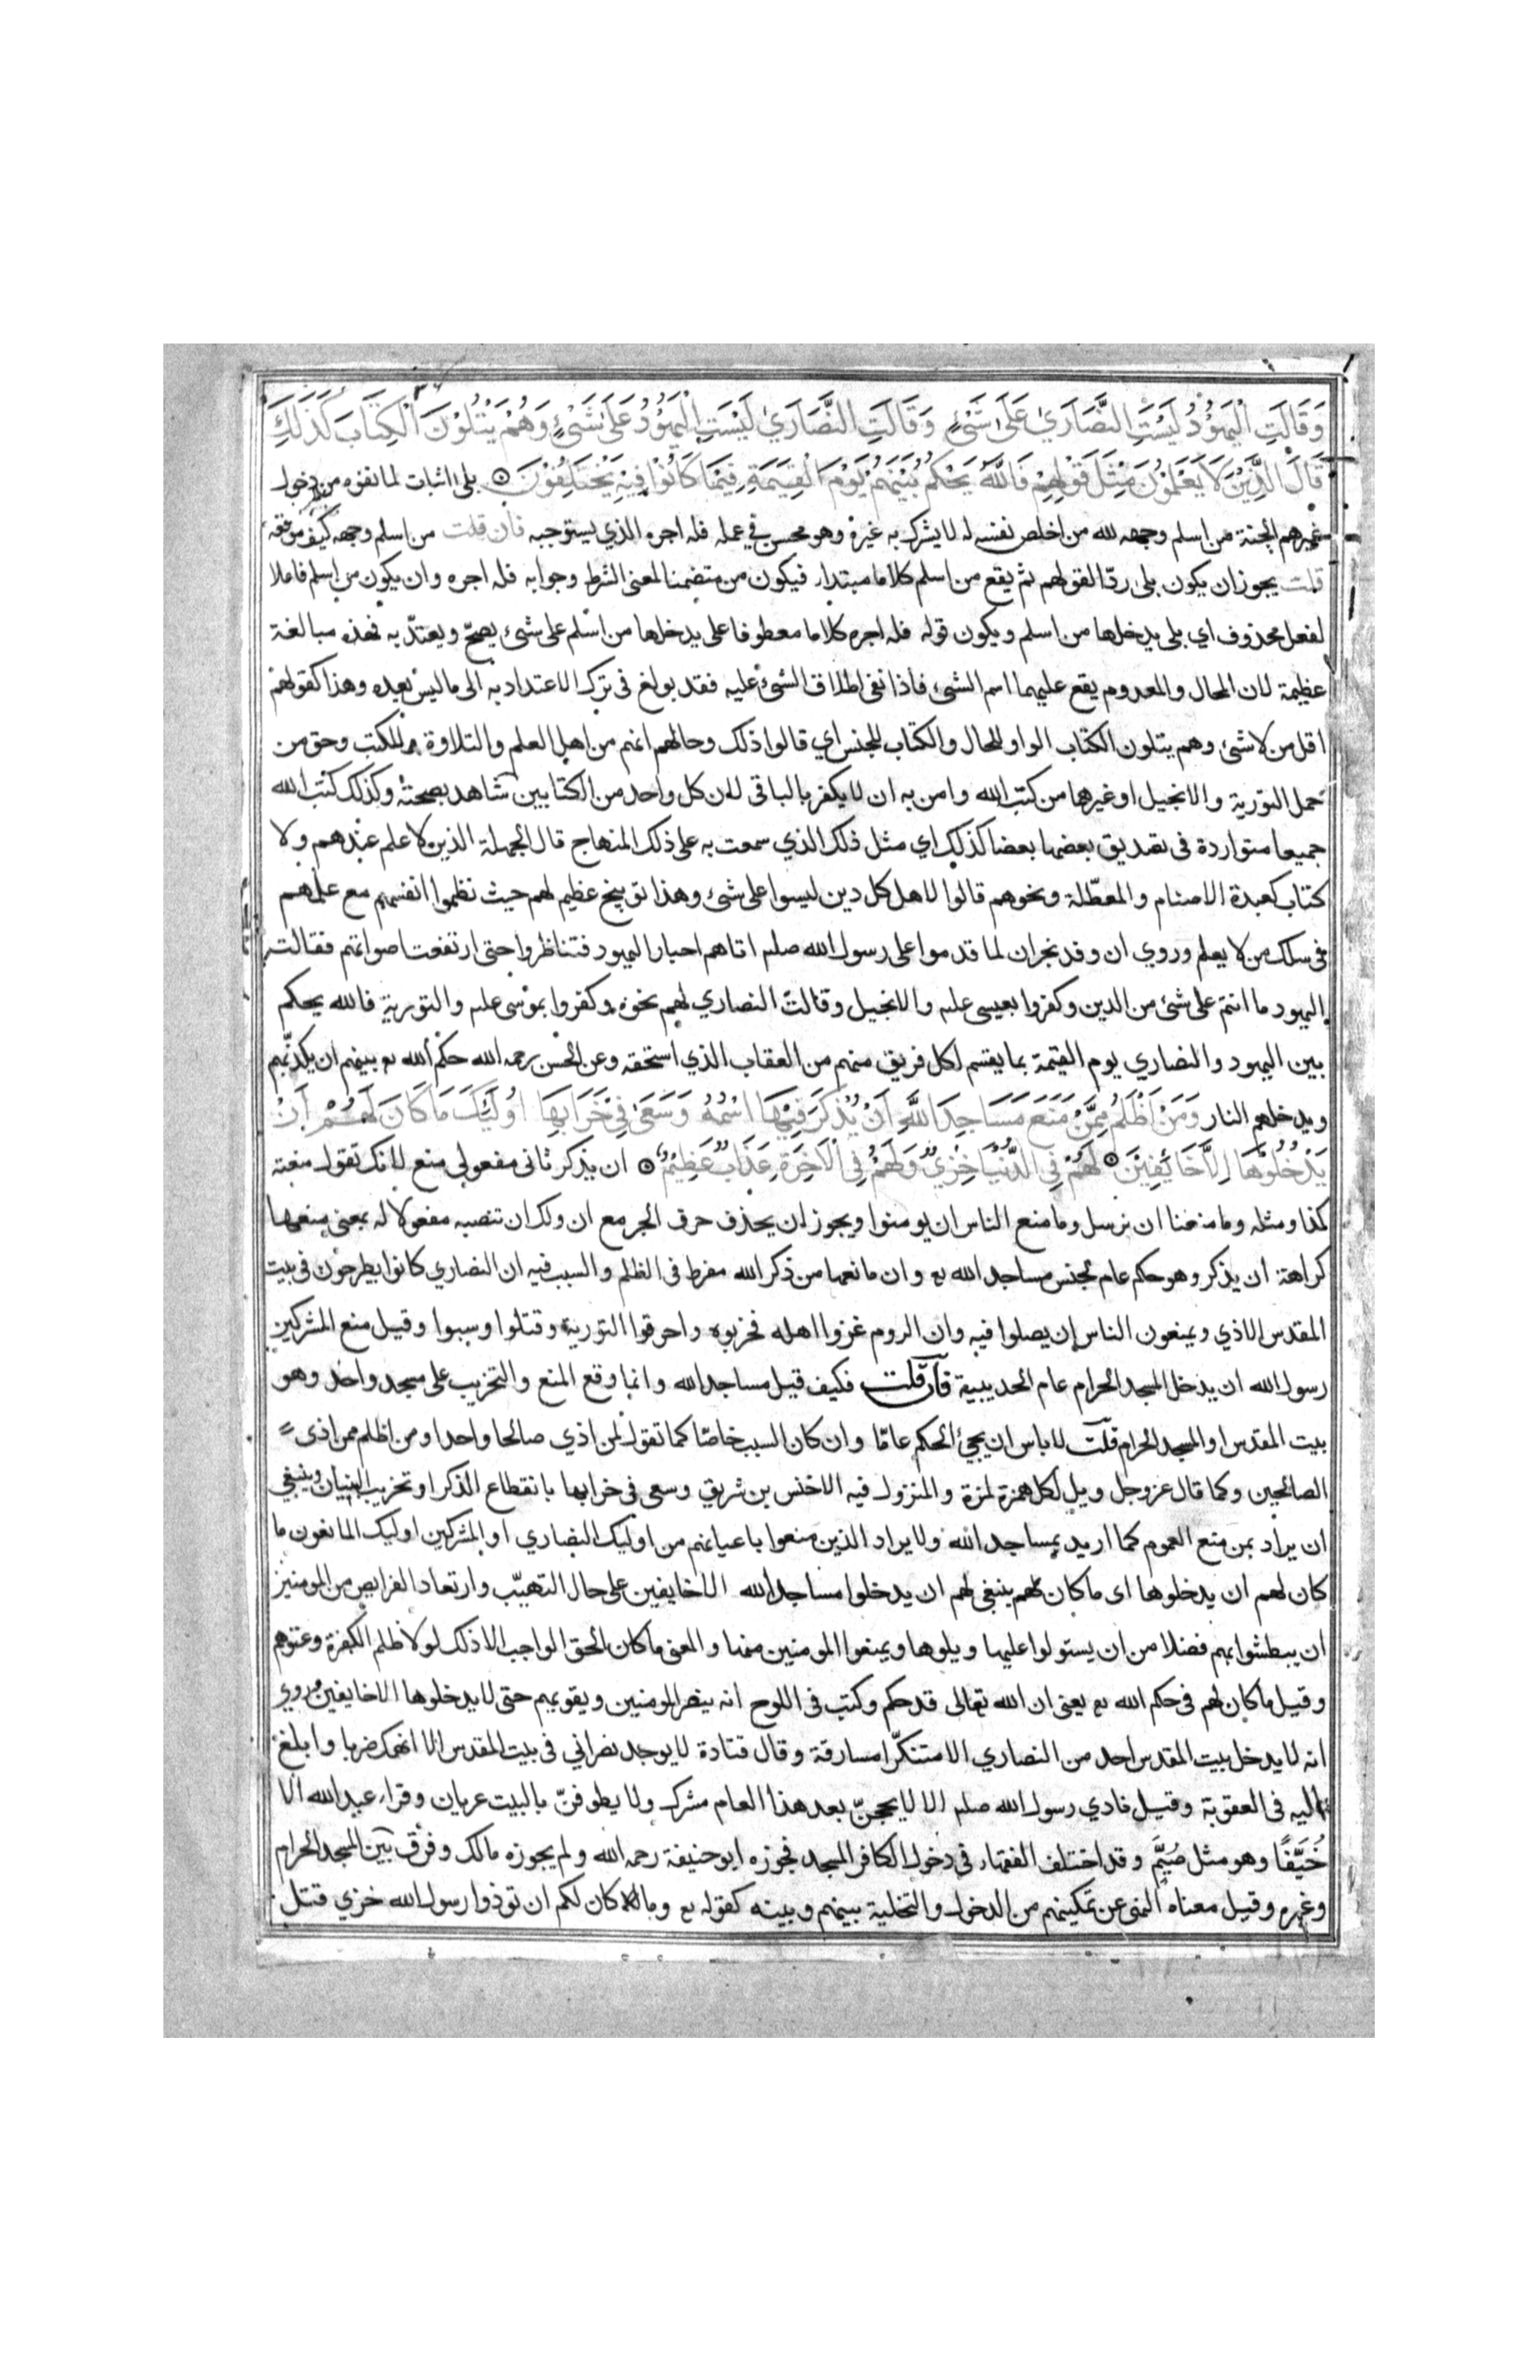 وَقَالَتِ الْيَهُوْدُ لَيْسَتِ النَّصَارَي عَلَى شَيْءٍ وَقَالَتِ النَّصَارَي لَيْسَتِ الْيَهُوْدُ عَلَى شَيْءٍ وَهُمْ يَتْلُوْنَ الْكِتَابَ كَذَلِكَ
قَالَ الَّذِيْنَ لَا يَعْلَمُوْنَ مِثْلَ قَوْلِهِمْ فَاللَّهُ يَحْكُمُ بَيْنَهُمْ يَوْمَ الْقِيَمَةِ فِيْمَا كَانُوْا فِيْهِ يَخْتَلِفُوْنَ ۞ بلى اثبات لما نفوه من دخول
غيرهم الجنة من اسلم وجهه لله من اخلص نفسه له لا يشرك به غيره وهو محسن في عمله فله اجره الذي يستوجبه فان قلت من اسلم وجهه كيف موقعه
قلت يجوز ان يكون بلى ردّا لقولهم ثم يقع من اسلم كلاما مبتداء فيكون من متضمنا لمعنى الشرط وجوابه فله اجره وان يكون من اسلم فاعلا
لفعل محذوف اي بلى يدخلها من اسلم ويكون قوله فله اجره كلاما معطوفا على يدخلها من اسلم على شئ يصحّ ويعتدّ به فهذه مبالغة
عظيمة لان المحال والمعدوم يقع عليهما اسم الشئ فاذا نفى اطلاق الشئ عليه فقد بولغ فى ترك الاعتداد به الى ما ليس بعده وهذا كقولهم
اقل من لا شئ وهم يتلون الكتاب الواو للحال والكتاب للجنس اي قالوا ذلك وحالهم انهم من اهل العلم والتلاوة للكتب وحق من
حمل التورية والانجيل او غيرها من كتب الله وامن به ان لا يكفر بالباقى لان كل واحد من الكتابين شاهد بصحته وكذلك كتب الله
جميعا متواردة فى تصديق بعضها بعضا كذلك اي مثل ذلك الذي سمعت به على ذلك المنهاج قال الجهلة الذين لا علم عندهم ولا
كتاب كعبدة الاصنام والمعطّلة ونحوهم قالوا لاهل كل دين ليسوا على شئ وهذا توبيخ عظيم لهم حيث نظموا انفسهم مع علمهم
فى سلك من لا يعلم وروي ان وفد نجران لما قدموا على رسول الله صلم اتاهم احبار اليهود فتناظروا حتى ارتفعت اصواتهم فقالت
اليهود ما انتم على شئ من الدين وكفروا بعيسى علم والانجيل وقالت النصاري لهم نحوه وكفروا بموسى علم والتورية فالله يحكم
بين اليهود والنصاري يوم القيمة بما يقسم لكل فريق منهم من العقاب الذي استحقه وعن الحسن رحمه الله حكم الله تع بينهم ان يكذّبهم
ويدخلهم النار وَمَنْ اَظْلَمُ مِمَّنْ مَنَعَ مَسَاجِدَ اللَّهِ اَنْ يُذْكَرَ فِيْهَا اسْمُهُ وَسَعَى فِيْ خَرَابِهَا اُولَئِكَ مَا كَانَ لَهُمْ اَنْ
يَدْخُلُوْهَا اِلَّا خَائِفِيْنَ ۞ لَهُمْ فِي الدُّنْيَا خِزْيٌ وَلَهُمْ فِي الْاخِرَةِ عَذَابٌ عَظِيْمٌ ۞ ان يذكر ثانى مفعولي منع لانك تقول منعته
كذا ومثله وما منعنا ان نرسل وما منع الناس ان يومنوا ويجوز ان يحذف حرف الجر مع ان ولك ان تنصبه مفعولا له بمعنى منعها
كراهة ان يذكر وهو حكم عام لجنس مساجد الله تع وان مانعها من ذكر الله مفرط فى الظلم والسبب فيه ان النصاري كانوا يطرحون فى بيت
المقدس الاذي ويمنعون الناس ان يصلوا فيه وان الروم غزوا اهله فخربوه واحرقوا التورية وقتلوا وسبوا وقيل منع المشركين
رسول الله ان يدخل المسجد الحرام عام الحديبية فان قلت فكيف قيل مساجد الله وانما وقع المنع والتخريب على مسجد واحد وهو
بيت المقدس او المسجد الحرام قلت لا باس ان يجئ الحكم عامّا وان كان السبب خاصّا كما تقول لمن اذي صالحا واحدا ومن اظلم ممن اذى
الصالحين وكما قال عز وجل ويل لكل همزة لمزة والمنزول فيه الاخنس بن شريق وسعى فى خرابها بانقطاع الذكر او تخريب البنيان وينبغي
ان يراد بمن منع العموم كما اريد بمساجد الله ولا يراد الذين منعوا باعيانهم من اوليك النصاري او المشركين اوليك المانعون ما
كان لهم ان يدخلوها اى ما كان لهم ينبغى لهم ان يدخلوا مساجد الله الا خايفين على حال التهيّب وارتعاد الفرايص من المومنين
ان يبطشوا بهم فضلا من ان يستولوا عليها ويلوها ويمنعوا المومنين منها والمعنى ما كان الحق الواجب الا ذلك لولا ظلم الكفرة وعتوهم
وقيل ما كان لهم فى حكم الله تع يعنى ان الله تعالى قد حكم وكتب فى اللوح انه ينصر المومنين ويقويهم حتى لا يدخلوها الا خايفين وروي
انه لا يدخل بيت المقدس احد من النصاري الا متنكّرا مسارقة وقال قتادة لا يوجد نصراني فى بيت المقدس الا انهك ضربا وابلغ
اليه فى العقوبة وقيل نادي رسول الله صلم الا لا يحجنّ بعد هذا العام مشرك ولا يطوفنّ بالبيت عريان وقراء عبد الله الا
خُيَّفًا وهو مثل صُيَّم وقد اختلف الفقهاء فى دخول الكافر المسجد فجوزه ابو حنيفة رحمه الله ولم يجوزه مالك وفرق بين المسجد الحرام
وغيره وقيل معناه النهى عن تمكينهم من الدخول والتخلية بينهم وبينه كقوله تع وما كان لكم ان توذوا رسول الله خزي قتل